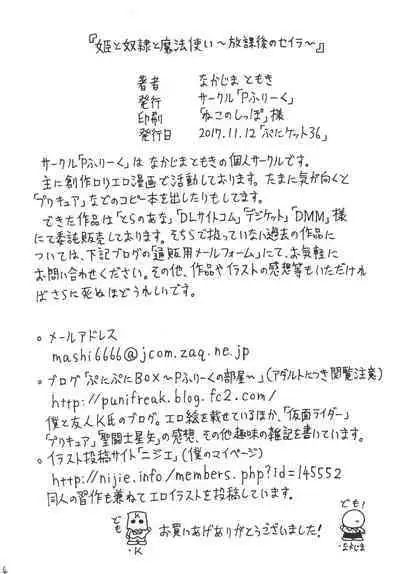 『姫と奴隷と魔法使い～放課後のセイラ～』
著者 なかじまともき
発行 サークル「Pふりーく」
印刷 「ねこのしっぽ」様
発行日 2017.11.12「ぷにケット36」
サークル「Pふりーく」は なかじまともきの個人サークルです。
主に創作ロリエロ漫画で活動しております。たまに気が向くと
「プリキュア」などのコピー本を出したりもしてます。
できた作品は「とらのあな」「DLサイトコム」「デジケット」「DMM」様
にて委託販売しております。そちらで扱っていない過去の作品に
ついては、下記ブログの「通販用メールフォーム」にて、お気軽に
お問い合わせください。その他、作品やイラストの感想等もいただけれ
ばさらに死ぬほどうれしいです。
○ メールアドレス
mashi6666@jcom.zaq.ne.jp
○ ブログ「ぷにぷにBOX～Pふりーくの部屋～」(アダルトにつき閲覧注意)
http://punifreak.blog.fc2.com/
僕と友人K氏のブログ。エロ絵を載せているほか、「仮面ライダー」
「プリキュア」「聖闘士星矢」の感想、その他趣味の雑記を書いています。
○ イラスト投稿サイト「ニジエ」(僕のマイページ)
http://nijie.info/members.php?id=145552
同人の習作も兼ねてエロイラストを投稿しています。
ども
K
・K
お買いあげありがとうございました!
ども!
・なかじま